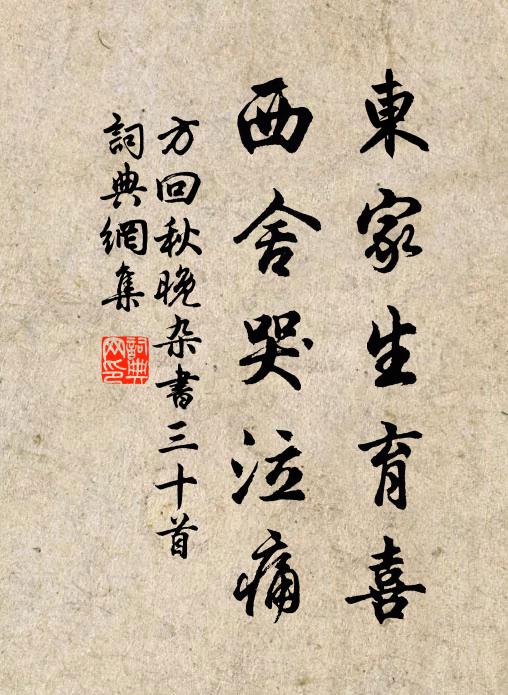 東家生育喜
西舍哭泣痛
方回秋晚杂書三十首
詞典網集
詞典网印